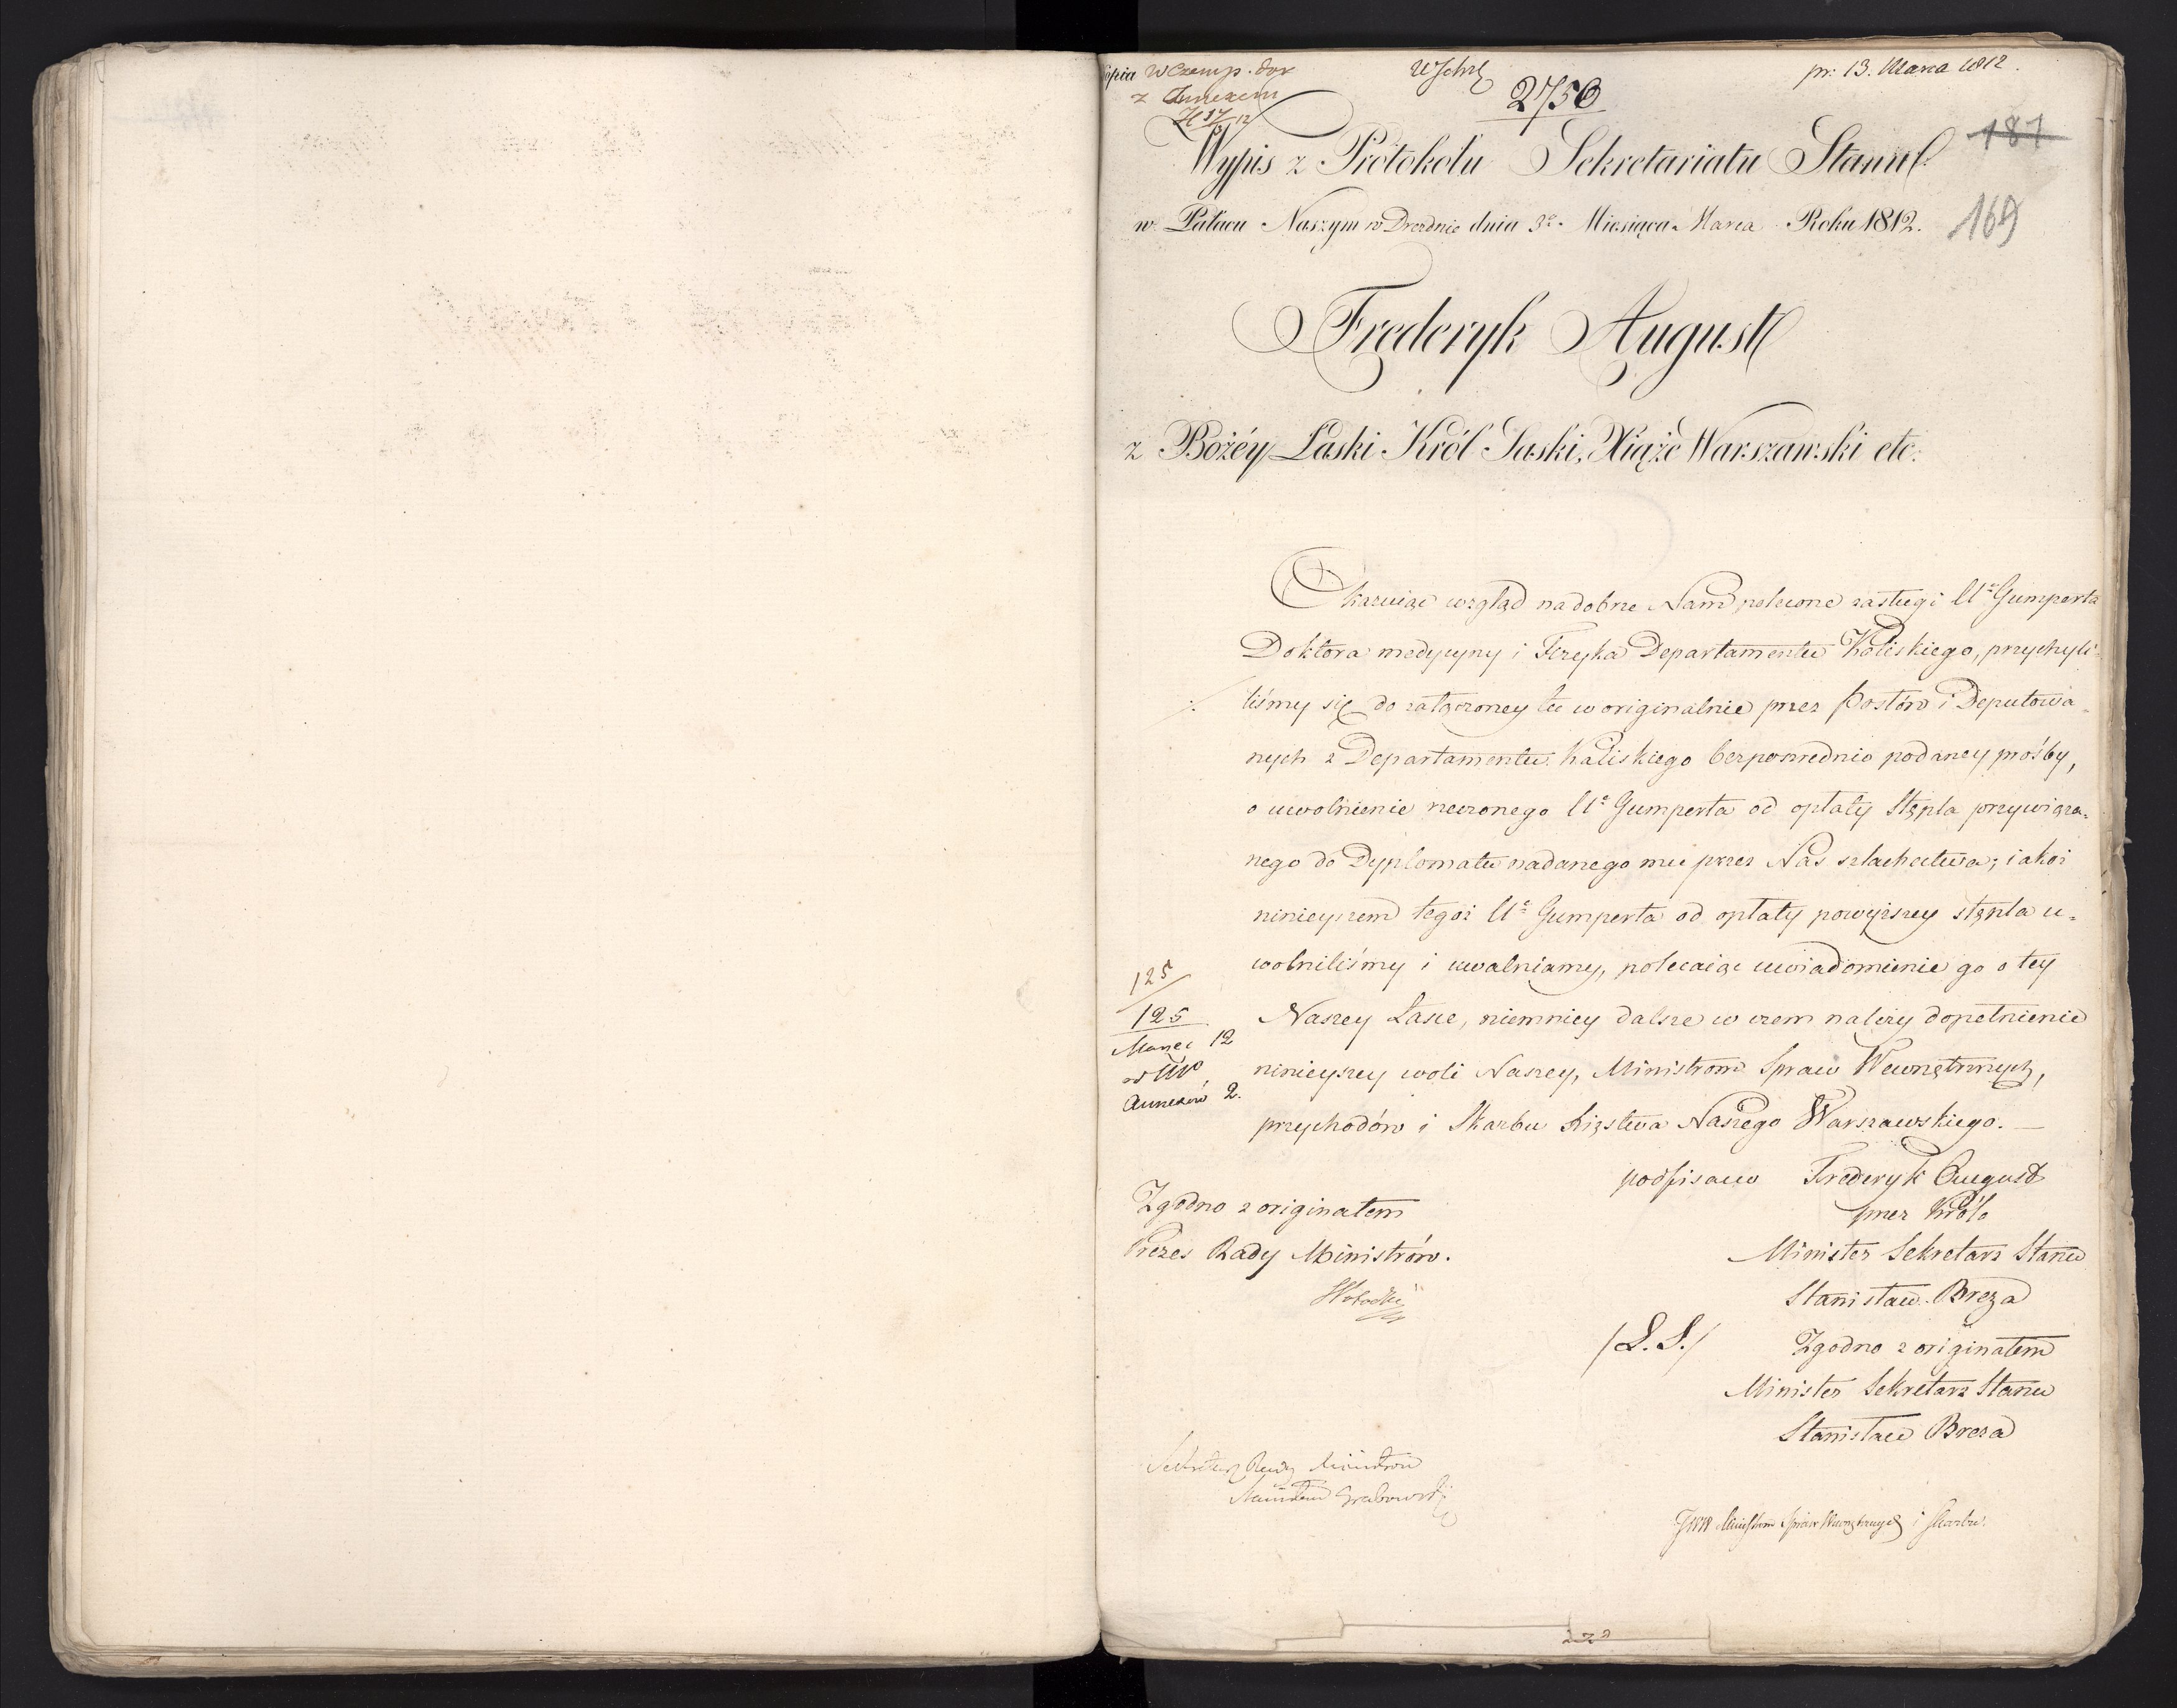 opia
z Annexem
pr: 13. Marca 1812.
2750
187
Wypis z Protokołu Sekretariatu Stanu.
w Pałacu Naszym w Dreznie dnia 3º Miesiąca Marca Roku 1812.
169
Frederyk August
z Bożéy Łaski Król Saski, Xiąże Warszawski etc:
Okazuiąc wzgląd na dobne Nam polecone zasługi Uº Gumperta
Doktora medycyny i Fizyka Departamentu Kaliskiego, przychyli-
liśmy się do załączoney tu w originalnie przez Posłów i Deputowa-
nych z Departamentu Kaliskiego bezpośrednio podaney prośby,
o uwolnienie rzeczonego Uº Gumperta od opłaty stępla przywiąza-
nego do Dyplomatu nadanego mu przez Nas szlachectwa; iakoż
ninieyszem tegoż Uº Gumperta od opłaty powyższey stępla u-
wolniliśmy i uwalniamy, polecaiąc uwiadomienie go o tey
Naszey Łasce, niemniey dalsze w czem należy dopełnienie
ninieyszey woli Naszey, Ministrom Spraw Wewnętrznych,
przychodów i Skarbu Xięstwa Naszego Warszawskiego. —
125
125
Marzec 12
Annexów 2.
podpisano Frederyk August
przez Króla
Minister Sekretarz Stanu
Stanisław Breza
/L. S./
Zgodno z originałem
Minister Sekretarz Stanu
Stanisław Breza
Zgodno z originałem
Prezes Rady Ministrów.
Sekretarz Rady Ministrów
Stanisław Grabowski
Ministrom Spraw Wewnętrznych i Skarbu.